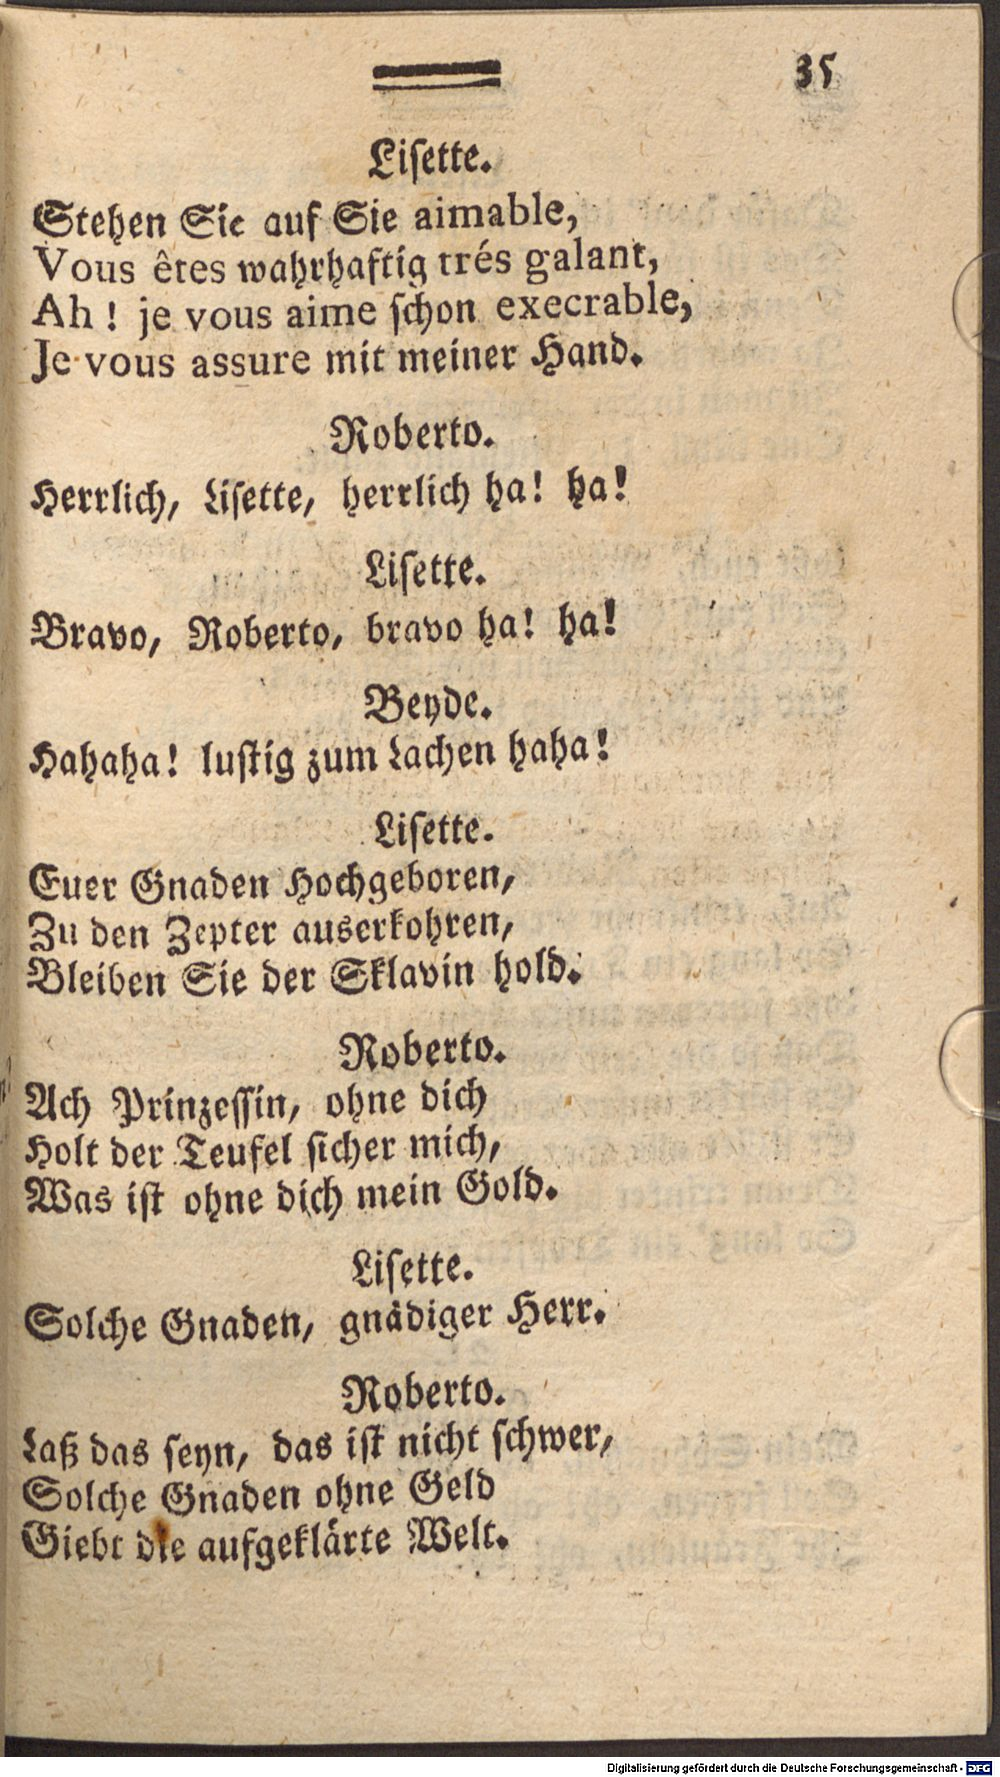 35
Lisette.
Stehen Sie auf Sie aimable,
Vous êtes wahrhaftig trés galant,
Ah! je vous aime schon execrable,
Je vous assure mit meiner Hand.
Roberto.
Herrlich, Lisette, herrlich ha! ha!
Lisette.
Bravo, Roberto, bravo ha! ha!
Beyde.
Hahaha! lustig zum Lachen haha!
Lisette.
Euer Gnaden Hochgeboren,
Zu den Zepter auserkohren,
Bleiben Sie der Sklavin hold.
Roberto.
Ach Prinzessin, ohne dich
Holt der Teufel sicher mich,
Was ist ohne dich mein Gold.
Lisette.
Solche Gnaden, gnädiger Herr.
Roberto.
Laß das seyn, das ist nicht schwer,
Solche Gnaden ohne Geld
Giebt die aufgeklärte Welt.
Digitalisierung gefördert durch die Deutsche Forschungsgemeinschaft - DFG